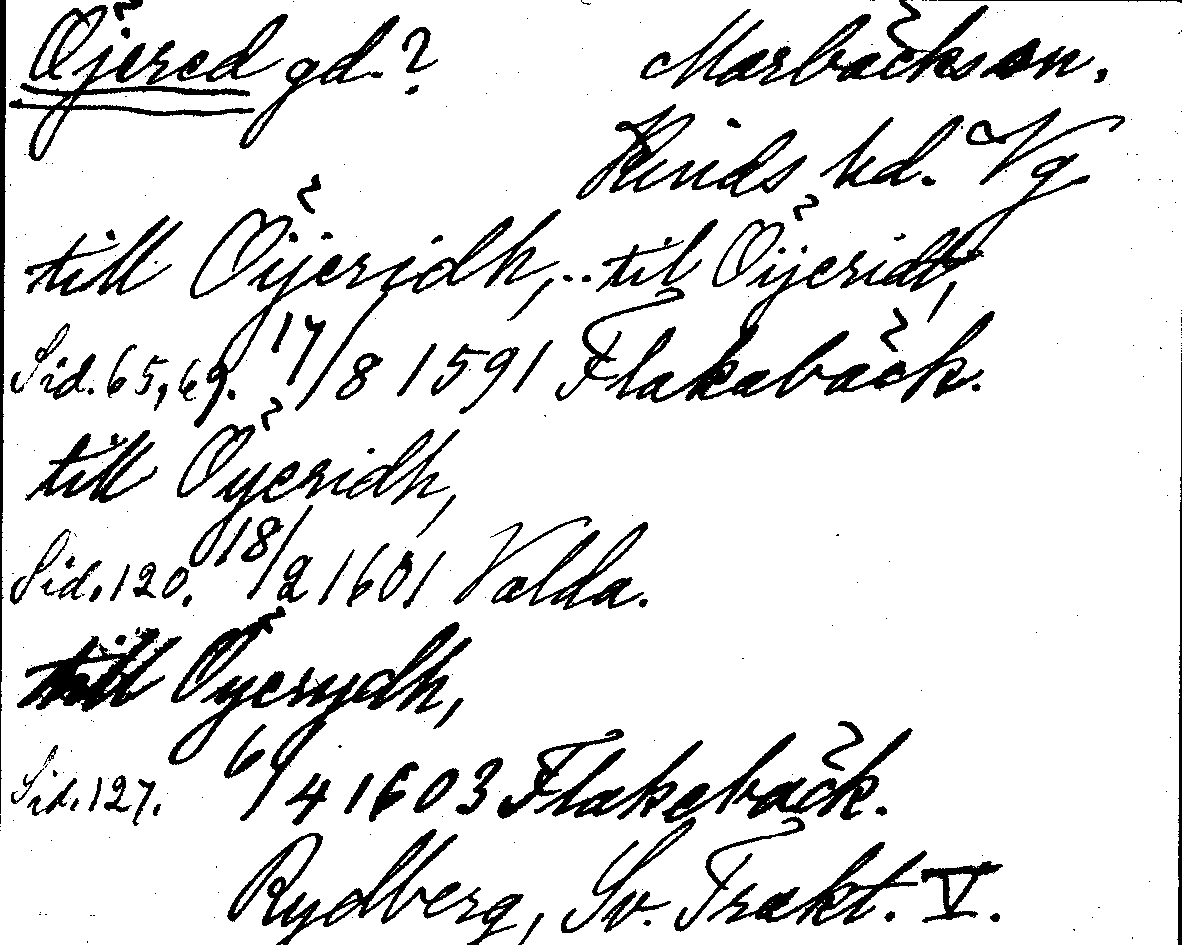 Öjered gd.? Marbäck sn.
Kinds hd. Vg
till Öijeridh,.. til Öijeridt,
Sid. 65, 69. 17/8 1591 Flakabäck.
till Öyeridh,
Sid. 120. 18/2 1601 Valda.
till Öyerydh,
Sid. 127. 6/4 1603 Flakebäck.
Rydberg, Sv. Trakt. V.